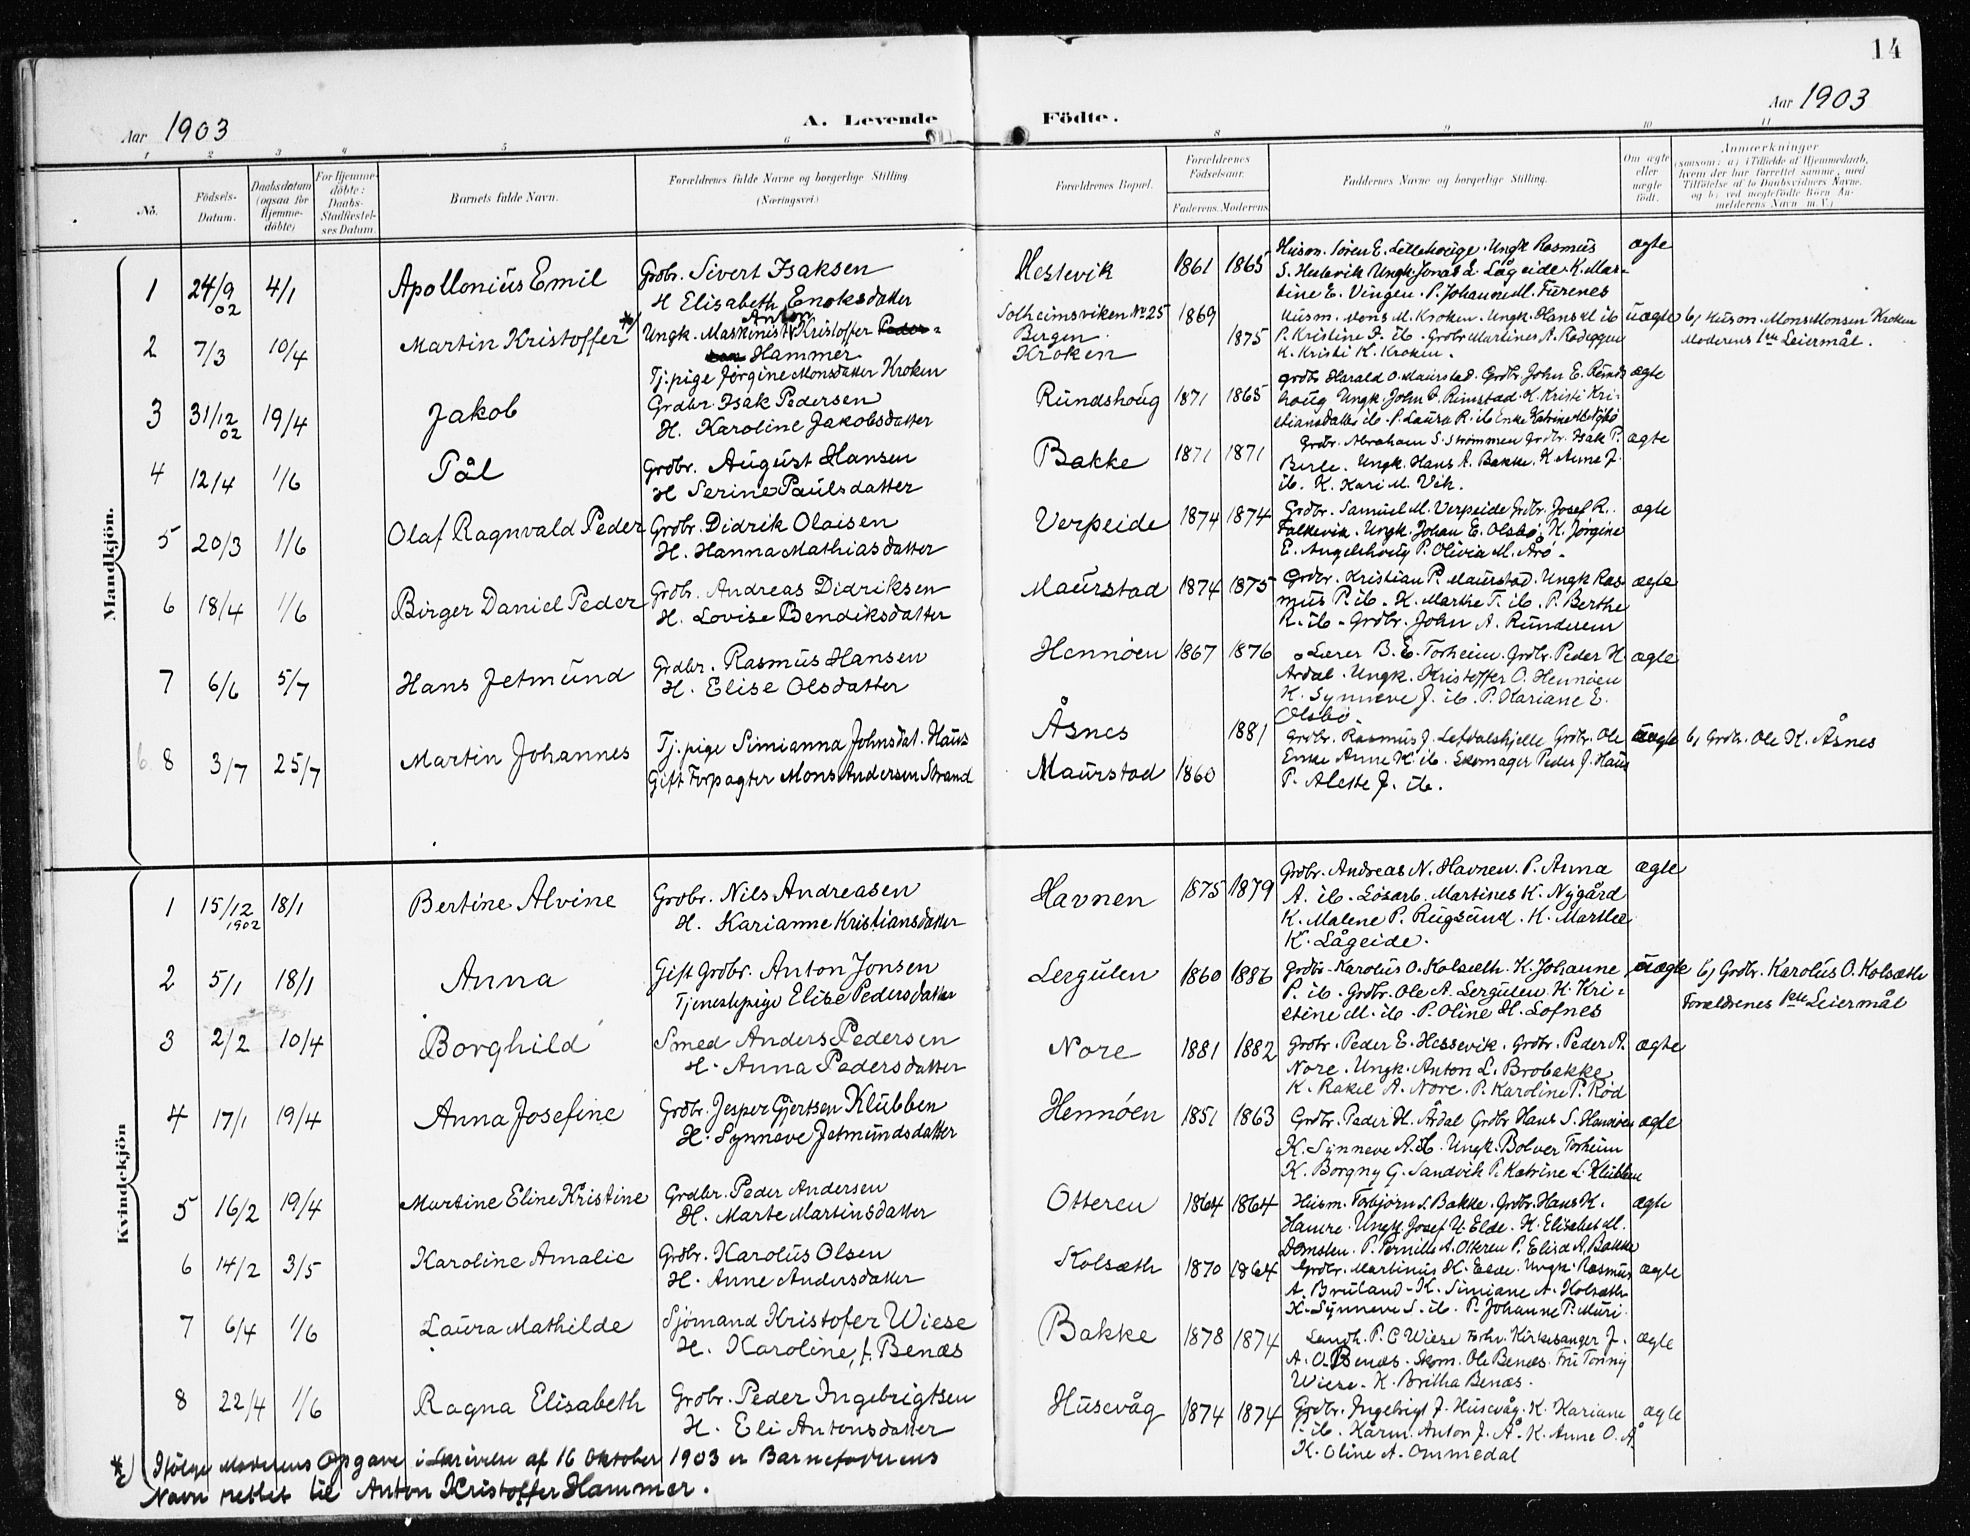 14
Aar 1903
A. Levende Födte.
Aar 1903
1 2 3 4 5 6 8 9 10 11
No.
Födsels-Datum.
Daabsdatum (ogsaa for Hjemme-döbte)
For Hjemme-döbte: Daabs-Stadfæstel-ses Datum.
Barnets fulde Navn.
Forældrenes fulde Navne og borgerlige Stilling
(Næringsvei)
Forældrenes Bopæl.
Forældrenes Födselsaar.
Faderens. Moderens.
Faddernes Navne og borgerlige Stilling.
Om ægte eller uægte födt.
Anmærkninger
(saasom: a) i Tilfælde af Hjemmedaab,
hvem der har forrettet samme, med
Tilföielse af to Daabsvidners Navne,
og b) ved uegtefödte Börn An-
melderens Navn m. V.)
Mandkjön.
1 24/9 02 4/1 Apollonius Emil
Grdbr. Sivert Isaksen
H Elisabeth Enoksdatter
Hestevik 1861 1865
Husm. Sören E. Lillehouge. Ungk Rasmus
S. Hestevik Ungk. Jonas E. Lågeide. K. Mar-
tine E. Vingen. P. Johanne M. Furenes
ægte
2 7/3 10/4 Martin Kristoffer *)
Anton
Ungk. Maskinist Kristoffer Peder-
sen Hammer
Tj.pige Jørgine Monsdatter Kroken
Solheimsviken No 25
Bergen
Kroken
1869 1875
Husm. Mons M. Kroken. Ungk. Hans M ib
P. Kristine I. ib. Grdbr Martines A. Rødeggen
K. Kristi K. Kroken.
uægte
b) Husm. Mons Monsen Kroken
Moderens 1ste Leiermål.
3 31/12 02 19/4 Jakob
Grdbr Isak Pedersen
H. Karoline Jakobsdatter
Rundshoug 1871 1865
Grdbr Harald O. Maurstad. Grdbr. John E. Runds
houg Ungk. John I. Rimstad. K. Kristi Kri-
stiansdatter ib. P. Laura R. ib Enke
ægte
4 12/4 1/6 Pål
Grdbr. August Hansen
H Serine Paulsdatter
Bakke 1871 1871
Grdbr. Abraham S. Strømmen Grdbr. Isak P.
Berle. Ungk. Hans A. Bakke. K. Anne J.
ib. K. Kari M. Vik.
ægte
5 20/3 1/6 Olaf Ragnvald Peder
Grdbr. Didrik Olaisen
H. Hanna Mathiasdatter
Verpeide 1874 1874
Grdbr. Samuel M. Verpeide Grdbr. Josef R.
Falkevik. Ungk. Johan E. Olsbø. K. Jørgine
E. Angelshoug P. Olivia M. Årø.
ægte
6 18/4 1/6 Birger Daniel Peder
Grdbr. Andreas Didriksen
H. Lovise Bendiksdatter
Maurstad 1874 1875
Grdbr. Kristian P. Maurstad. Ungk Ras-
mus P. ib. K. Marthe T. ib. P. Berthe
R. ib. Grdbr. John A. Runderem
ægte
7 6/6 5/7 Hans Jetmund
Grdbr. Rasmus Hansen
H. Elise Olsdatter
Hennøen 1867 1876
Lærer B. E. Torheim. Grdbr. Peder H
Ardal. Ungk. Kristoffer O. Hennøen
K. Synneve J. ib. P. Mariane E.
Olsbø.
ægte
8 3/7 25/7 Martin Johannes
Tj.pige Simianna Johnsdat. Haus
Gift Forpagter Mons Andersen Strand
Åsnes
Maurstad
1860 1881
Grdbr. Rasmus J. Lefdalshjelle Grdbr. Ole
Enke Anne K ib. Skomager Peder J. Haus
P. Alette J. ib.
uægte
b) Grdbr. Ole K. Åsnes
Kvindekjön
1 15/12 1902 18/1 Bertine Alvine
Grdbr. Nils Andreasen
H. Karianne Kristiansdatter
Havnen 1875 1879
Grdbr. Andreas N. Havnen. P. Anna
A. ib. Løsarb. Martines K. Nygård
K. Malene P. Rugsund. K. Marthe
K. Lågeide.
ægte
2 5/1 18/1 Anna
Gift Grdbr. Anton Jonsen
Tjenestepige Elise Pedersdatter
Lergulen 1860 1886
Grdbr. Karolus O. Kolsæth. K. Johanne
P. ib. Grdbr. Ole A. Lergulen K. Kri-
stine M. ib. P. Oline H. Lofnes
uægte
b) Grdbr. Karolus O. Kolsæth
Forældrenes 1ste Leiermål
3 2/2 10/4 Borghild
Smed Anders Pedersen
H. Anna Pedersdatter
Nore 1881 1882
Grdbr. Peder E. Hessevik. Grdbr. Peder A.
Nore. Ungk. Anton L. Brobakke
K. Rakel A. Nore. P. Karoline P. Rød
ægte
4 17/1 19/4 Anna Josefine
Grdbr. Jesper Gjertsen Klubben
H. Synneve Jetmundsdatter
Hennøen 1851 1863
Grdbr. Peder H. Årdal Grdbr Hans S. Hennøen
K. Synneve A. ib. Ungk. Bolver Torheim
K. Borgny G. Sandvik P. Katrine L. Klubben
ægte
5 16/2 19/4 Martine Eline Kristine
Grdbr. Peder Andersen
H. Marte Martinsdatter
Otteren 1864 1864
Husm. Torbjørn S. Bakke. Grdbr. Hans K.
Haure. Ungk. Josef U. Elde. K. Elisabet M.
Domsten. P. Pernille A. Otteren P. Elise A. Bakke
ægte
6 14/2 3/5 Karoline Amalie
Grdbr. Karolus Olsen
H. Anne Andersdatter
Kolsæth 1870 1864
Grdbr. Martinus H. Elde. Ungk. Rasmus
A. Bruland. K. Simiane A. Kolsæth
K. Synneve S. ib. P. Johanne P. Muri
ægte
7 6/4 1/6 Laura Mathilde
Sjømand Kristofer Wiese
H. Karoline, f. Benæs
Bakke 1878 1874
Landh. P. C Wiese Forhv. Kirkesanger J.
A. O. Benæs. Skom. Ole Benæs. Fru Tonny
Wiese. K. Britha Benæs.
ægte
8 22/4 1/6 Ragna Elisabeth
Grdbr. Peder Ingebrigtsen
H. Eli Antonsdatter
Husevåg 1874 1874
Grdbr. Ingebrigt J. Husevåg. K. Kariane
P. ib. Kårm. Anton J. Å. K. Anne O. Å
K. Oline A. Ommedal
ægte
*) Ifølge Moderens Opgave i Skrivelse af 16 Oktober 1903 er Barnefaderens
Navn rettet til Anton Kristoffer Hammer.